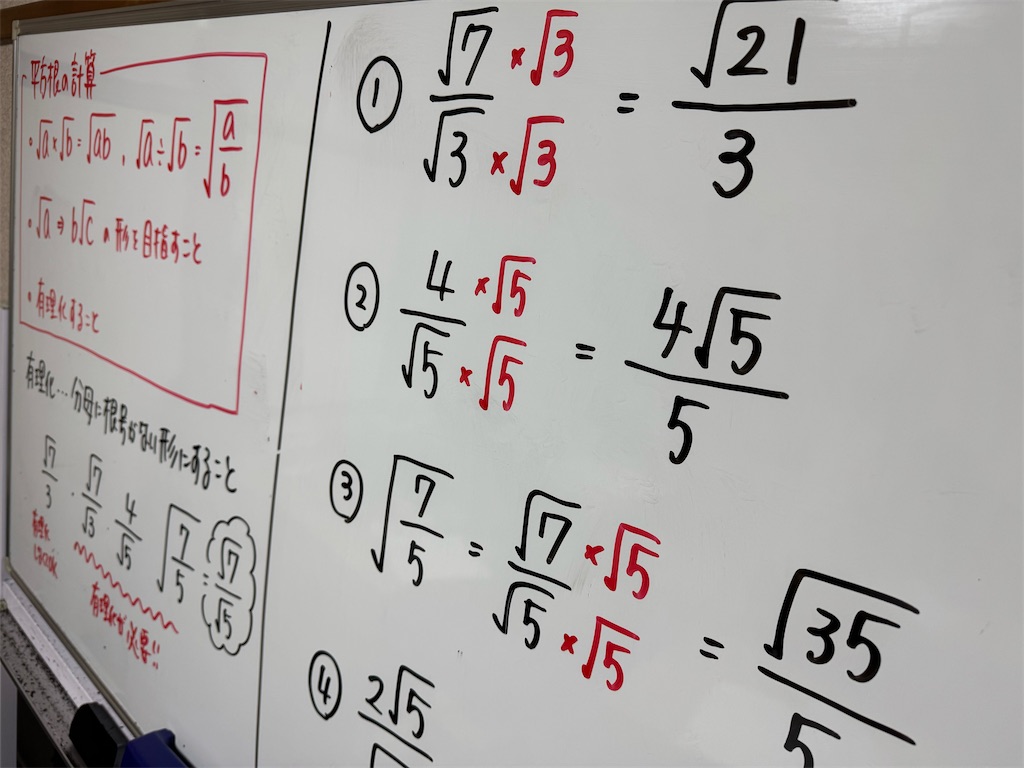 平方根の計算
・√a×√b=√ab , √a÷√b=√(a/b)
・√a⇒b√c の形を目指すこと
・有理化すること
有理化…分母に根号がない形にすること
√7/3 ・ √7/√3 ・ 4/√5 ・ √(7/5) = √7/√5
有理化
有理化が必要!!
① √7×√3/√3×√3 = √21/3
② 4×√5/√5×√5 = 4√5/5
③ √(7/5) = √7×√5/√5×√5 = √35/5
④ 2√5